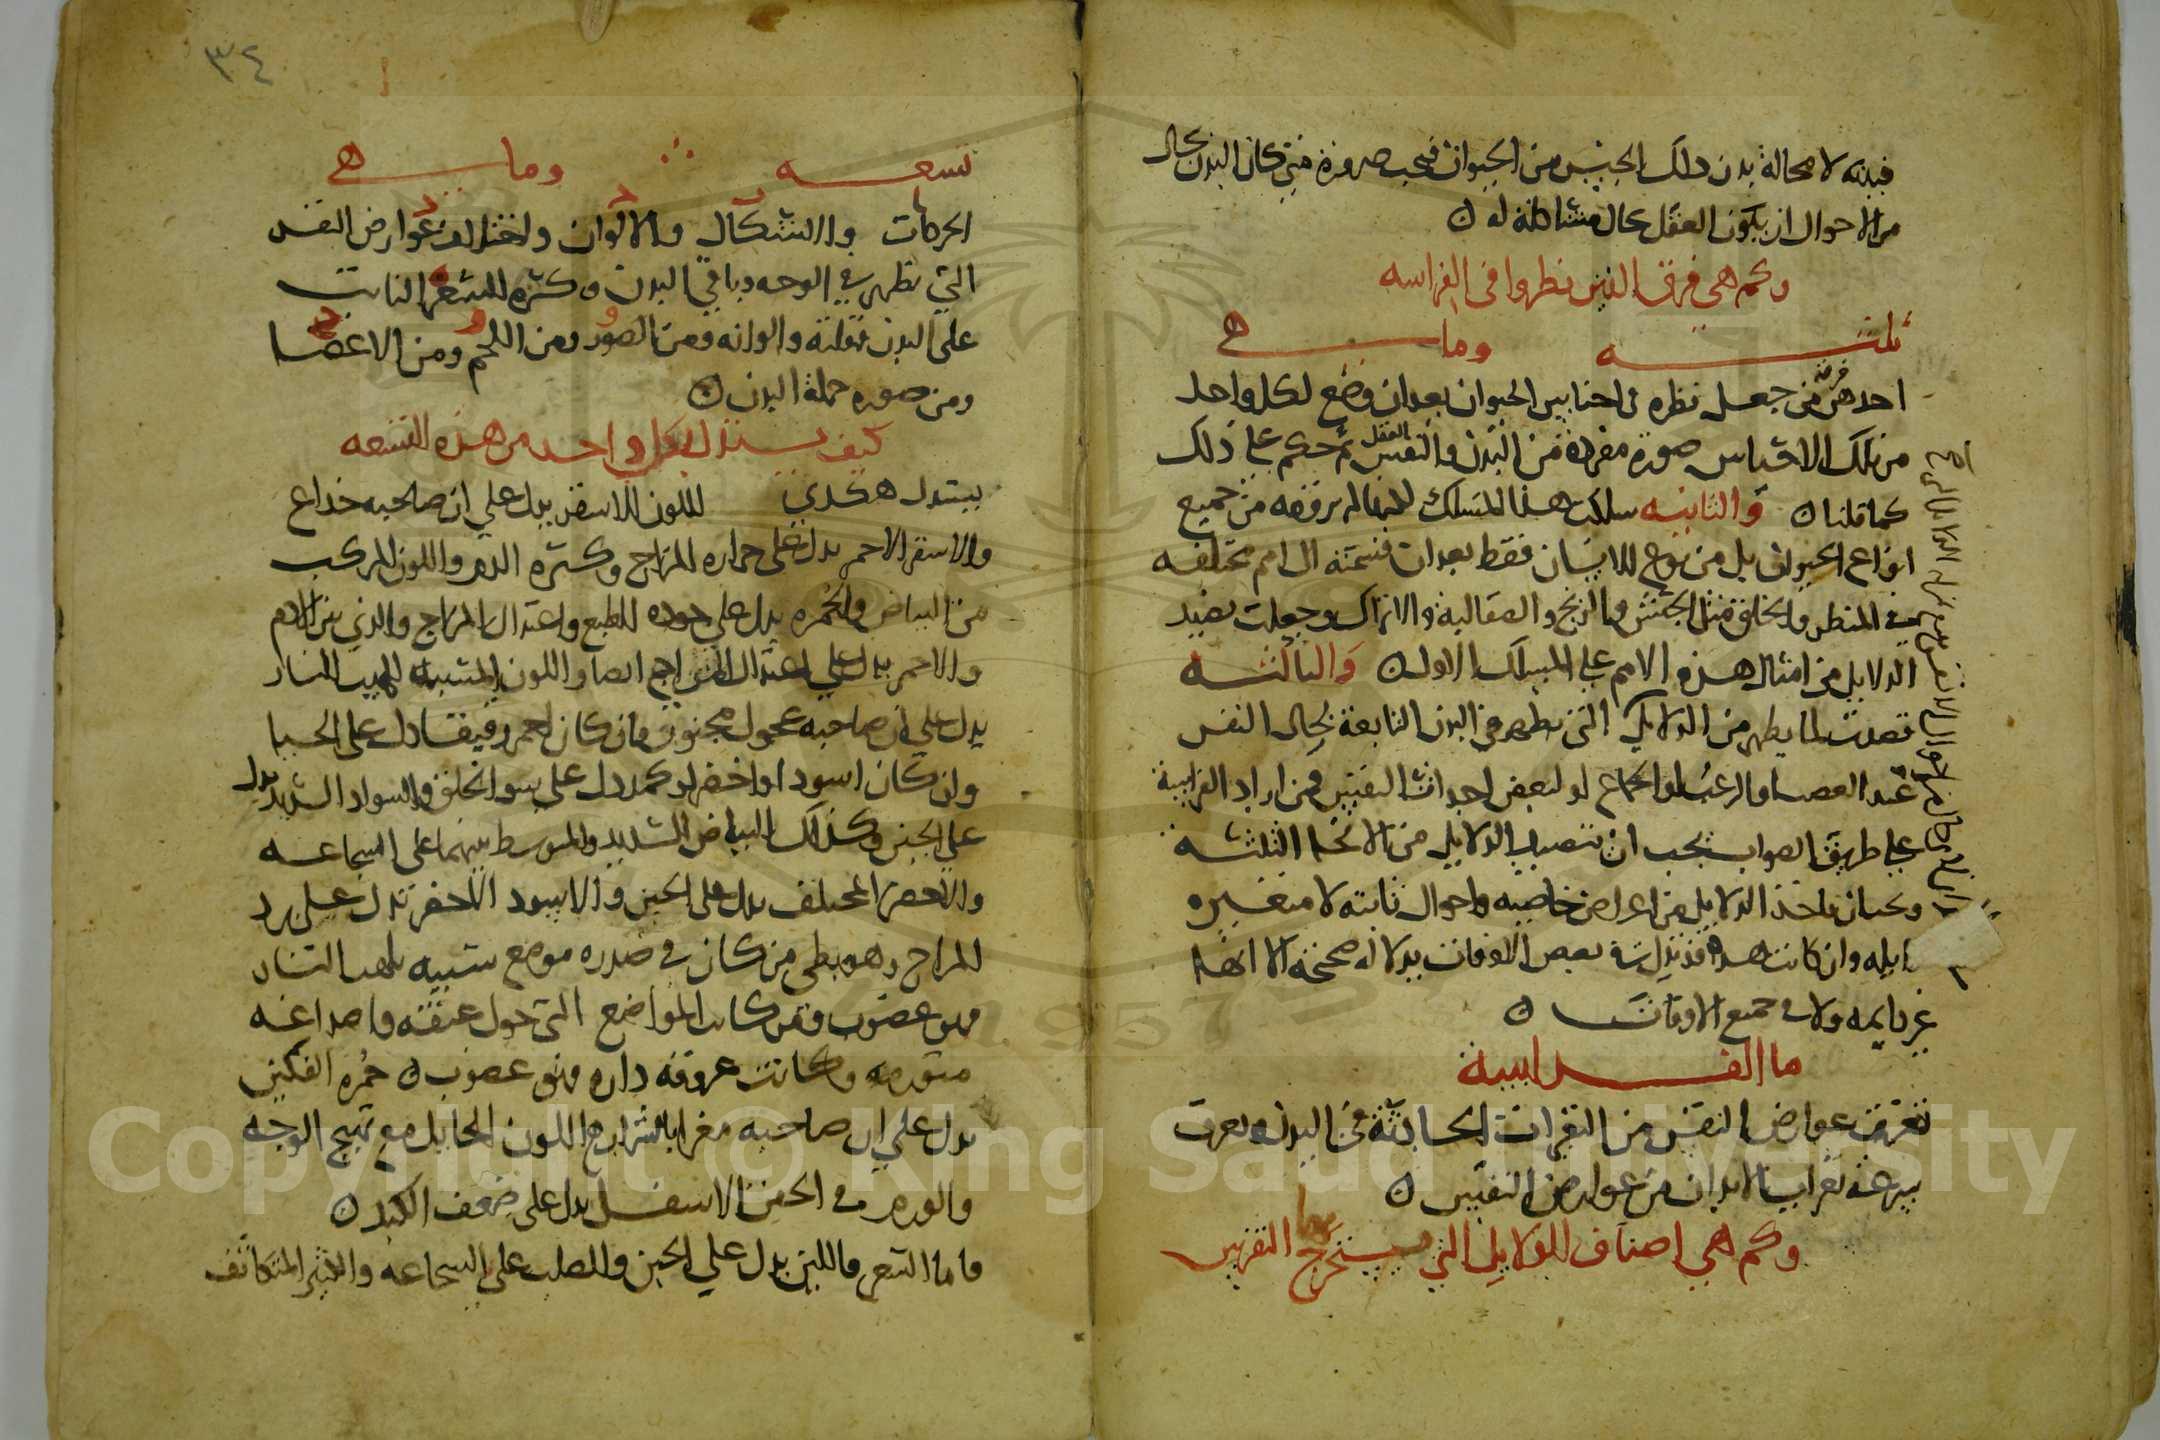 فبدنه لا محالة بدن ذلك الجنس من الحيوان فيجب ضرورة متى كان البدن بحال
من الاحوال ان يكون العقل بحال مشاكلة له
وكم هي فرق الذين نظروا في الفراسه
ثلثه وما هي
احدهن من جعل نظره في اجناس الحيوان بعد ان وضع لكل واحد
من تلك الاجناس صورة مفردة من البدن والنفس ثم حكم على ذلك
كما قلنا والثانيه سلكت هذا المسلك من جميع
انواع الحيوان بل من نوع الانسان فقط بعد ان قسمته الى امم مختلفه
في المنظر والخلق مثل الحبش والزنج والصقالبة والاتراك وجعلت
الدلايل من امثال هذه الامم على المسلك الاول والثالثه
قصدت لما يظهر من الدلايل التي تظهر في البدن التابعة لحال النفس
عند الغضب والرعب او الجماع او لبعض احداث النفس فمن اراد الفراسة
على طريق الصواب يجب ان الدلايل من الانحا الثلثة
الدلايل من اعراض خاصيه واحوال ثابته لا متغيره
وان كانت هذه قد تدل في بعض الاوقات دلاله صحيحة الا انها
غير دايمه ولا في جميع الاوقات
ما الفراسة
تعرف عوارض النفس من التغيرات الحادثة في البدن وتعرف
سرعة تغير الابدان من عوارض النفس
وكم هي اصناف الدلايل التي يستخرج منها التفرس
٣٤
تسعه وما هي
الحركات والاشكال والالوان واختلاف عوارض النفس
التي تظهر في الوجه وباقي البدن وكثره الشعر النابت
على البدن وقلته والوانه ومن الصور ومن اللحم ومن الاعضا
ومن صوره جملة البدن
كيف يستدل بكل واحد من هذه التسعه
يستدل هكذي اللون الاشقر يدل على ان صاحبه خداع
والاشقر الاحمر يدل على حراره المزاج وكثره الدم واللون المركب
من البياض والحمره يدل على جوده الطبع واعتدال المزاج والذي بين الادم
والاحمر يدل على اعتدال المزاج ايضا واللون المشبه للهيب النار
يدل على ان صاحبه عجول مجنون وان كان احمر رقيقا دل على الحيا
وان كان اسود او اخضر او كمد دل على سو الخلق والسواد الشديد يدل
على الجبن وكذلك البياض الشديد والمتوسط بينهما على الشجاعه
والاصفر المختلف يدل على الجبن والاسود الاخضر تدل على برد
المزاج وهو بطي من كان في صدره موضع شبيه بلهب النار
فهو غضوب ومن كانت المواضع التي حول عنقه واصداغه
متورمه وكانت عروقه داره فهو غضوب حمره الفكين
يدل على ان صاحبه مغرا بالشراب اللون الحايل مع تهيج الوجه
والورم في الجفن الاسفل يدل على ضعف الكبد
واما الشعر فاللين يدل على الجبن والصلب على الشجاعه والكثير المتكاثف